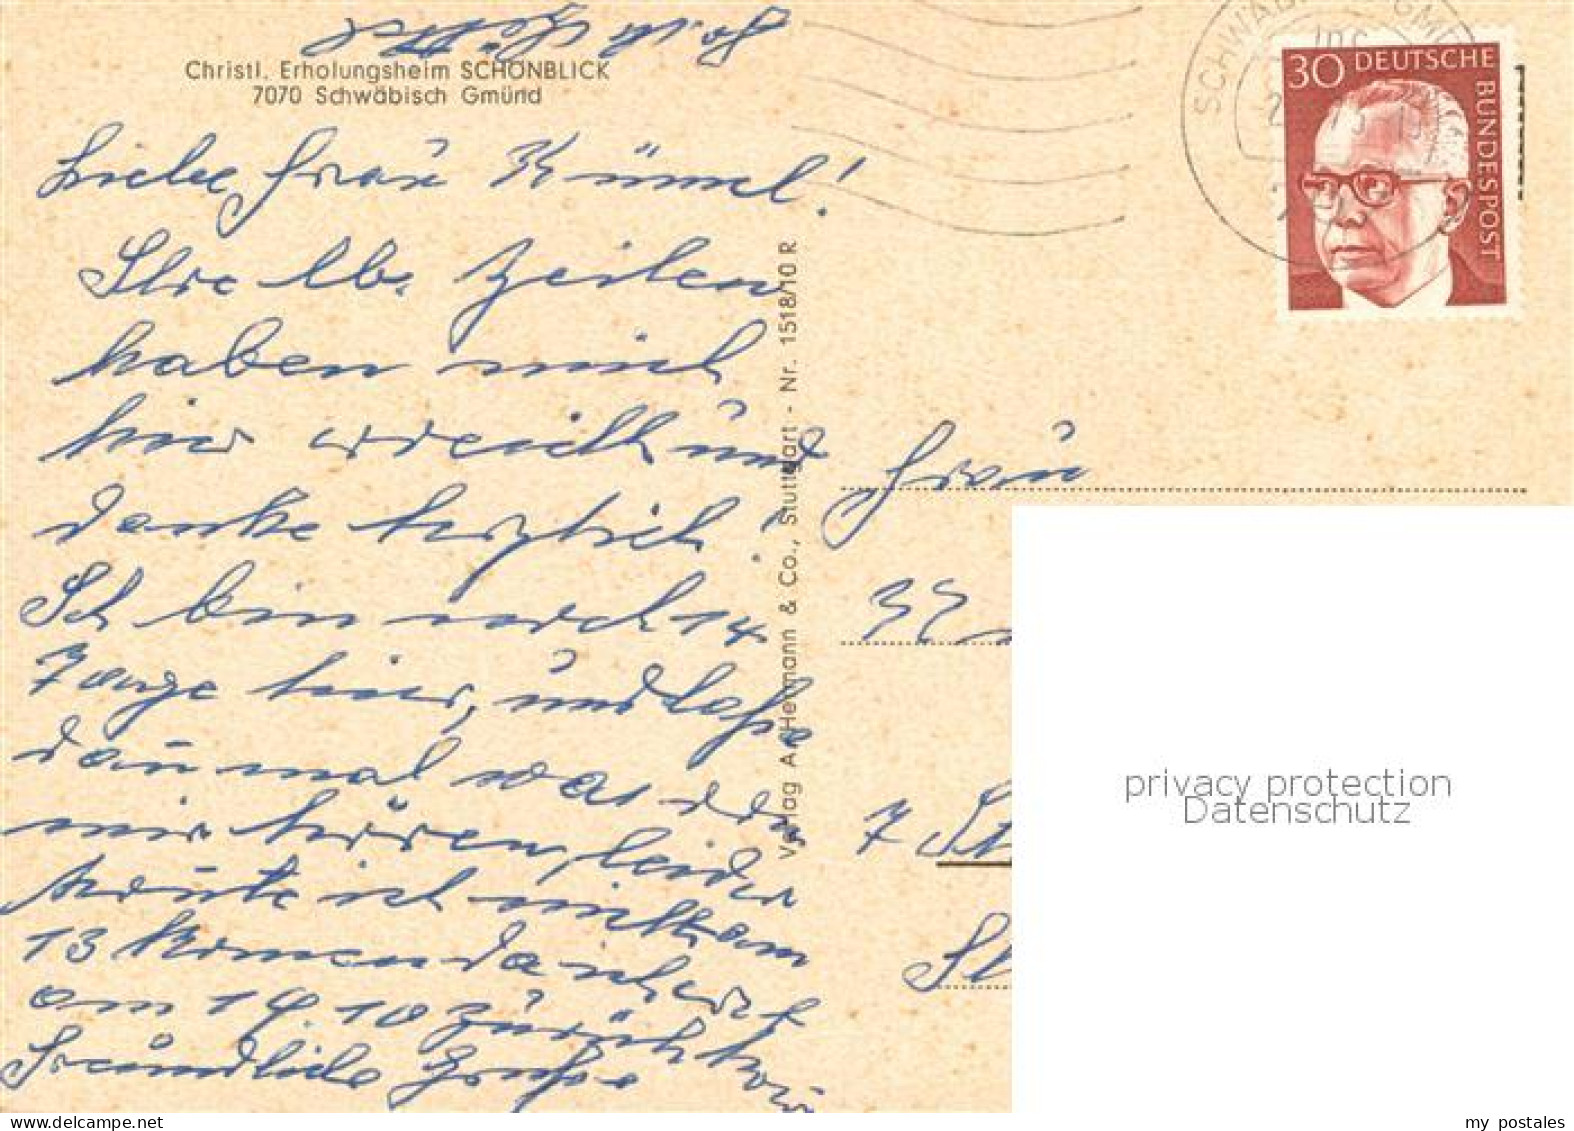 Christl. Erholungsheim SCHÖNBLICK
7070 Schwäbisch Gmünd
Liebe Frau Kümmel!
Ihre lb. Zeilen
haben mich
hier erreicht und
danke herzlich
Ich bin noch 14
Tage hier, und lasse
dann mal was von
mir hören, leider
heute ich nicht am
13 kommen da ich erst
am 14 10 zurück
Freundliche Grüße
Verlag A. Herrmann & Co., Stuttgart - Nr. 1518/10 R
SCHWÄB
30 DEUTSCHE
BUNDESPOST
Frau
7 St
privacy protection
Datenschutz
my postales